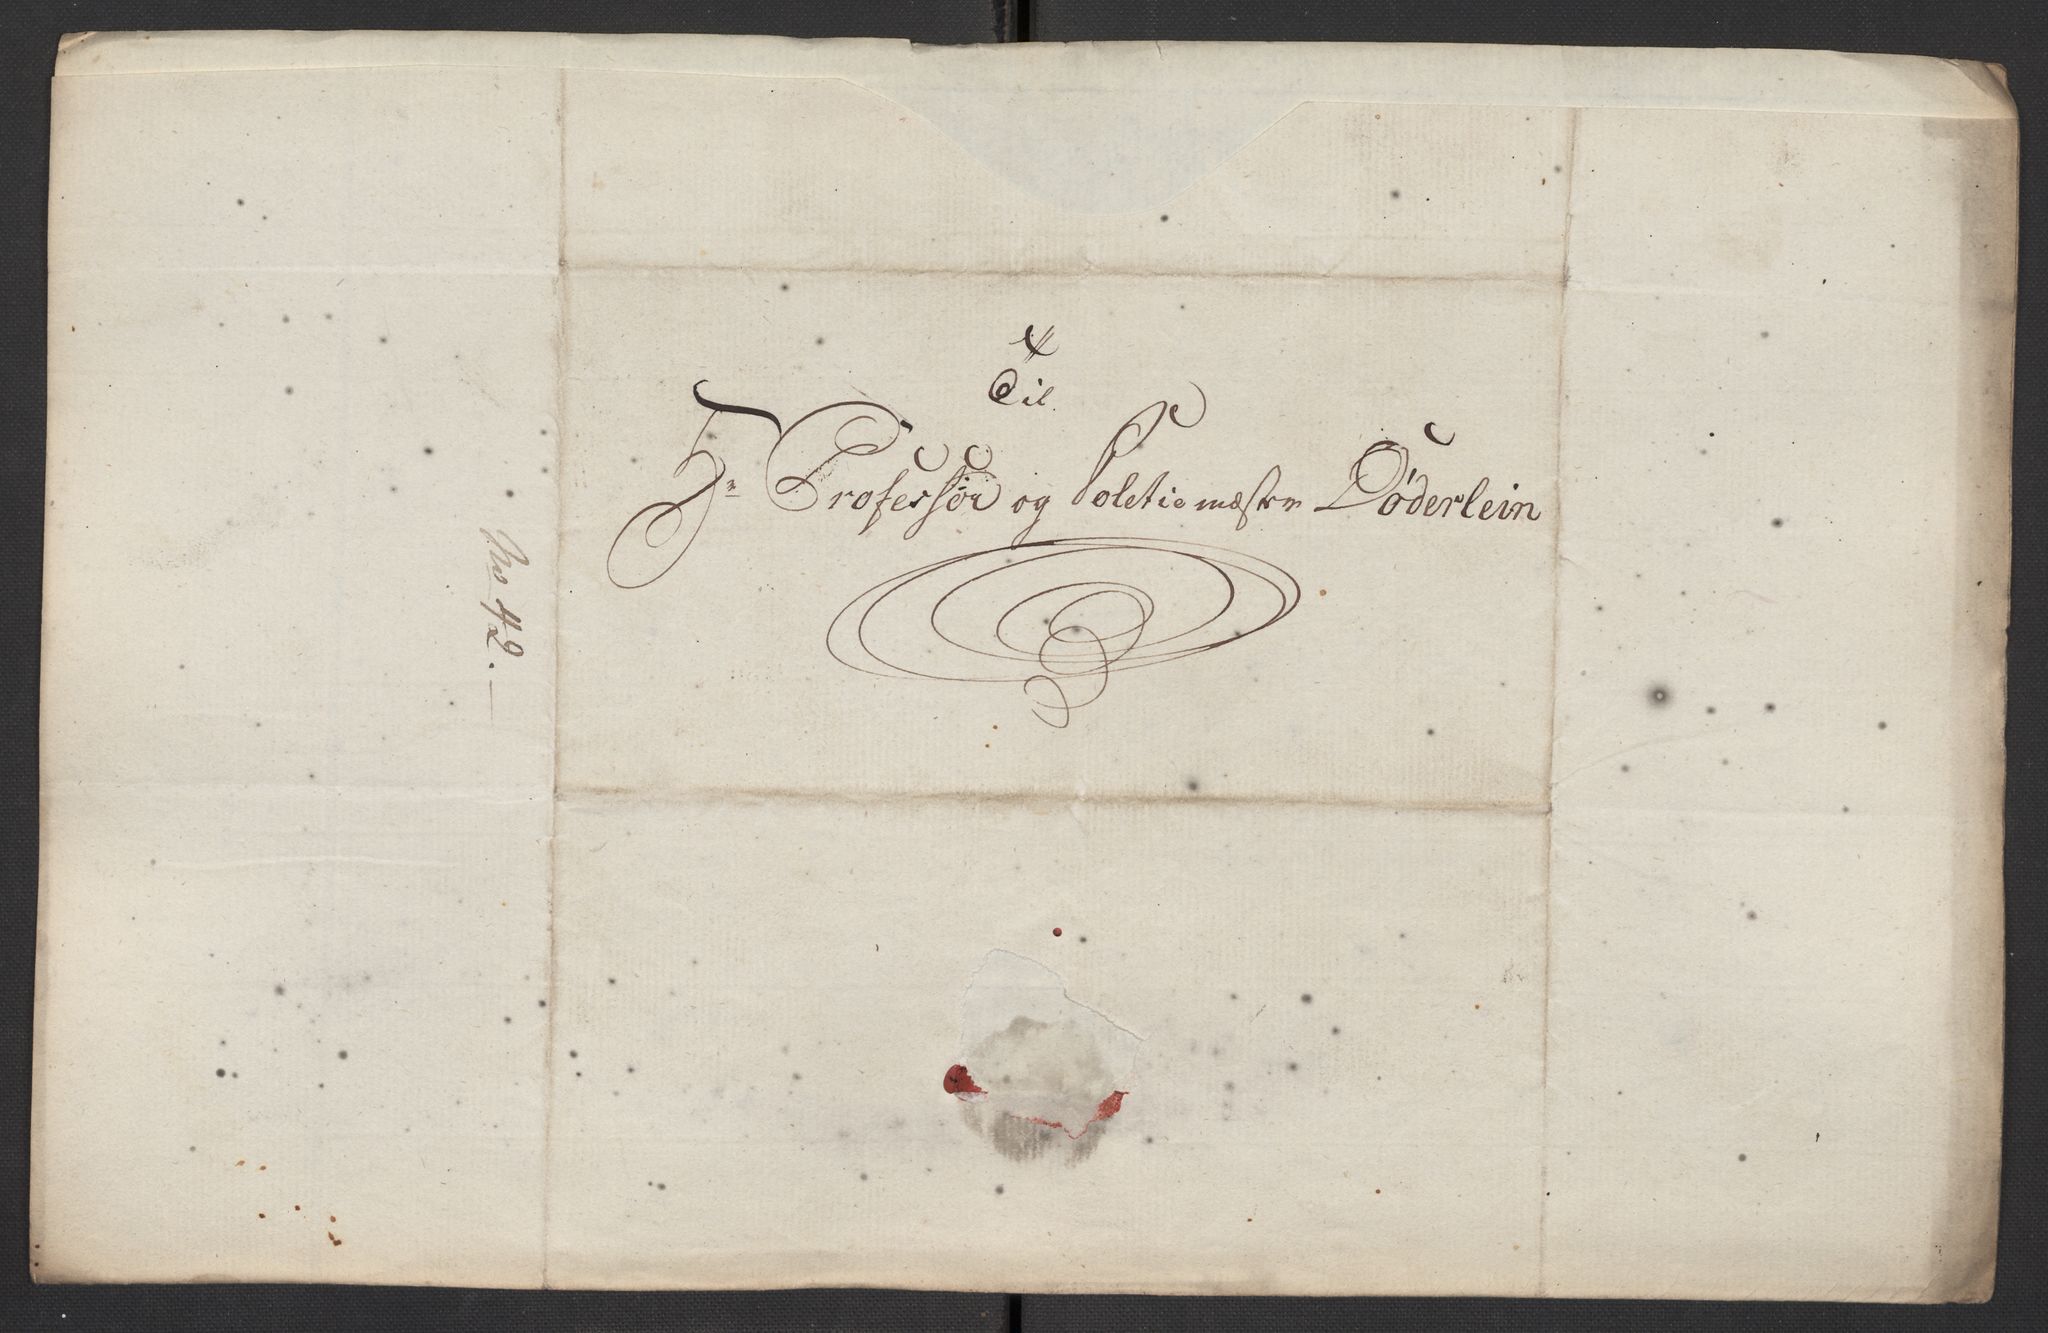 Til
Hr Professor og Poletiemæster Døderlein
No 42.